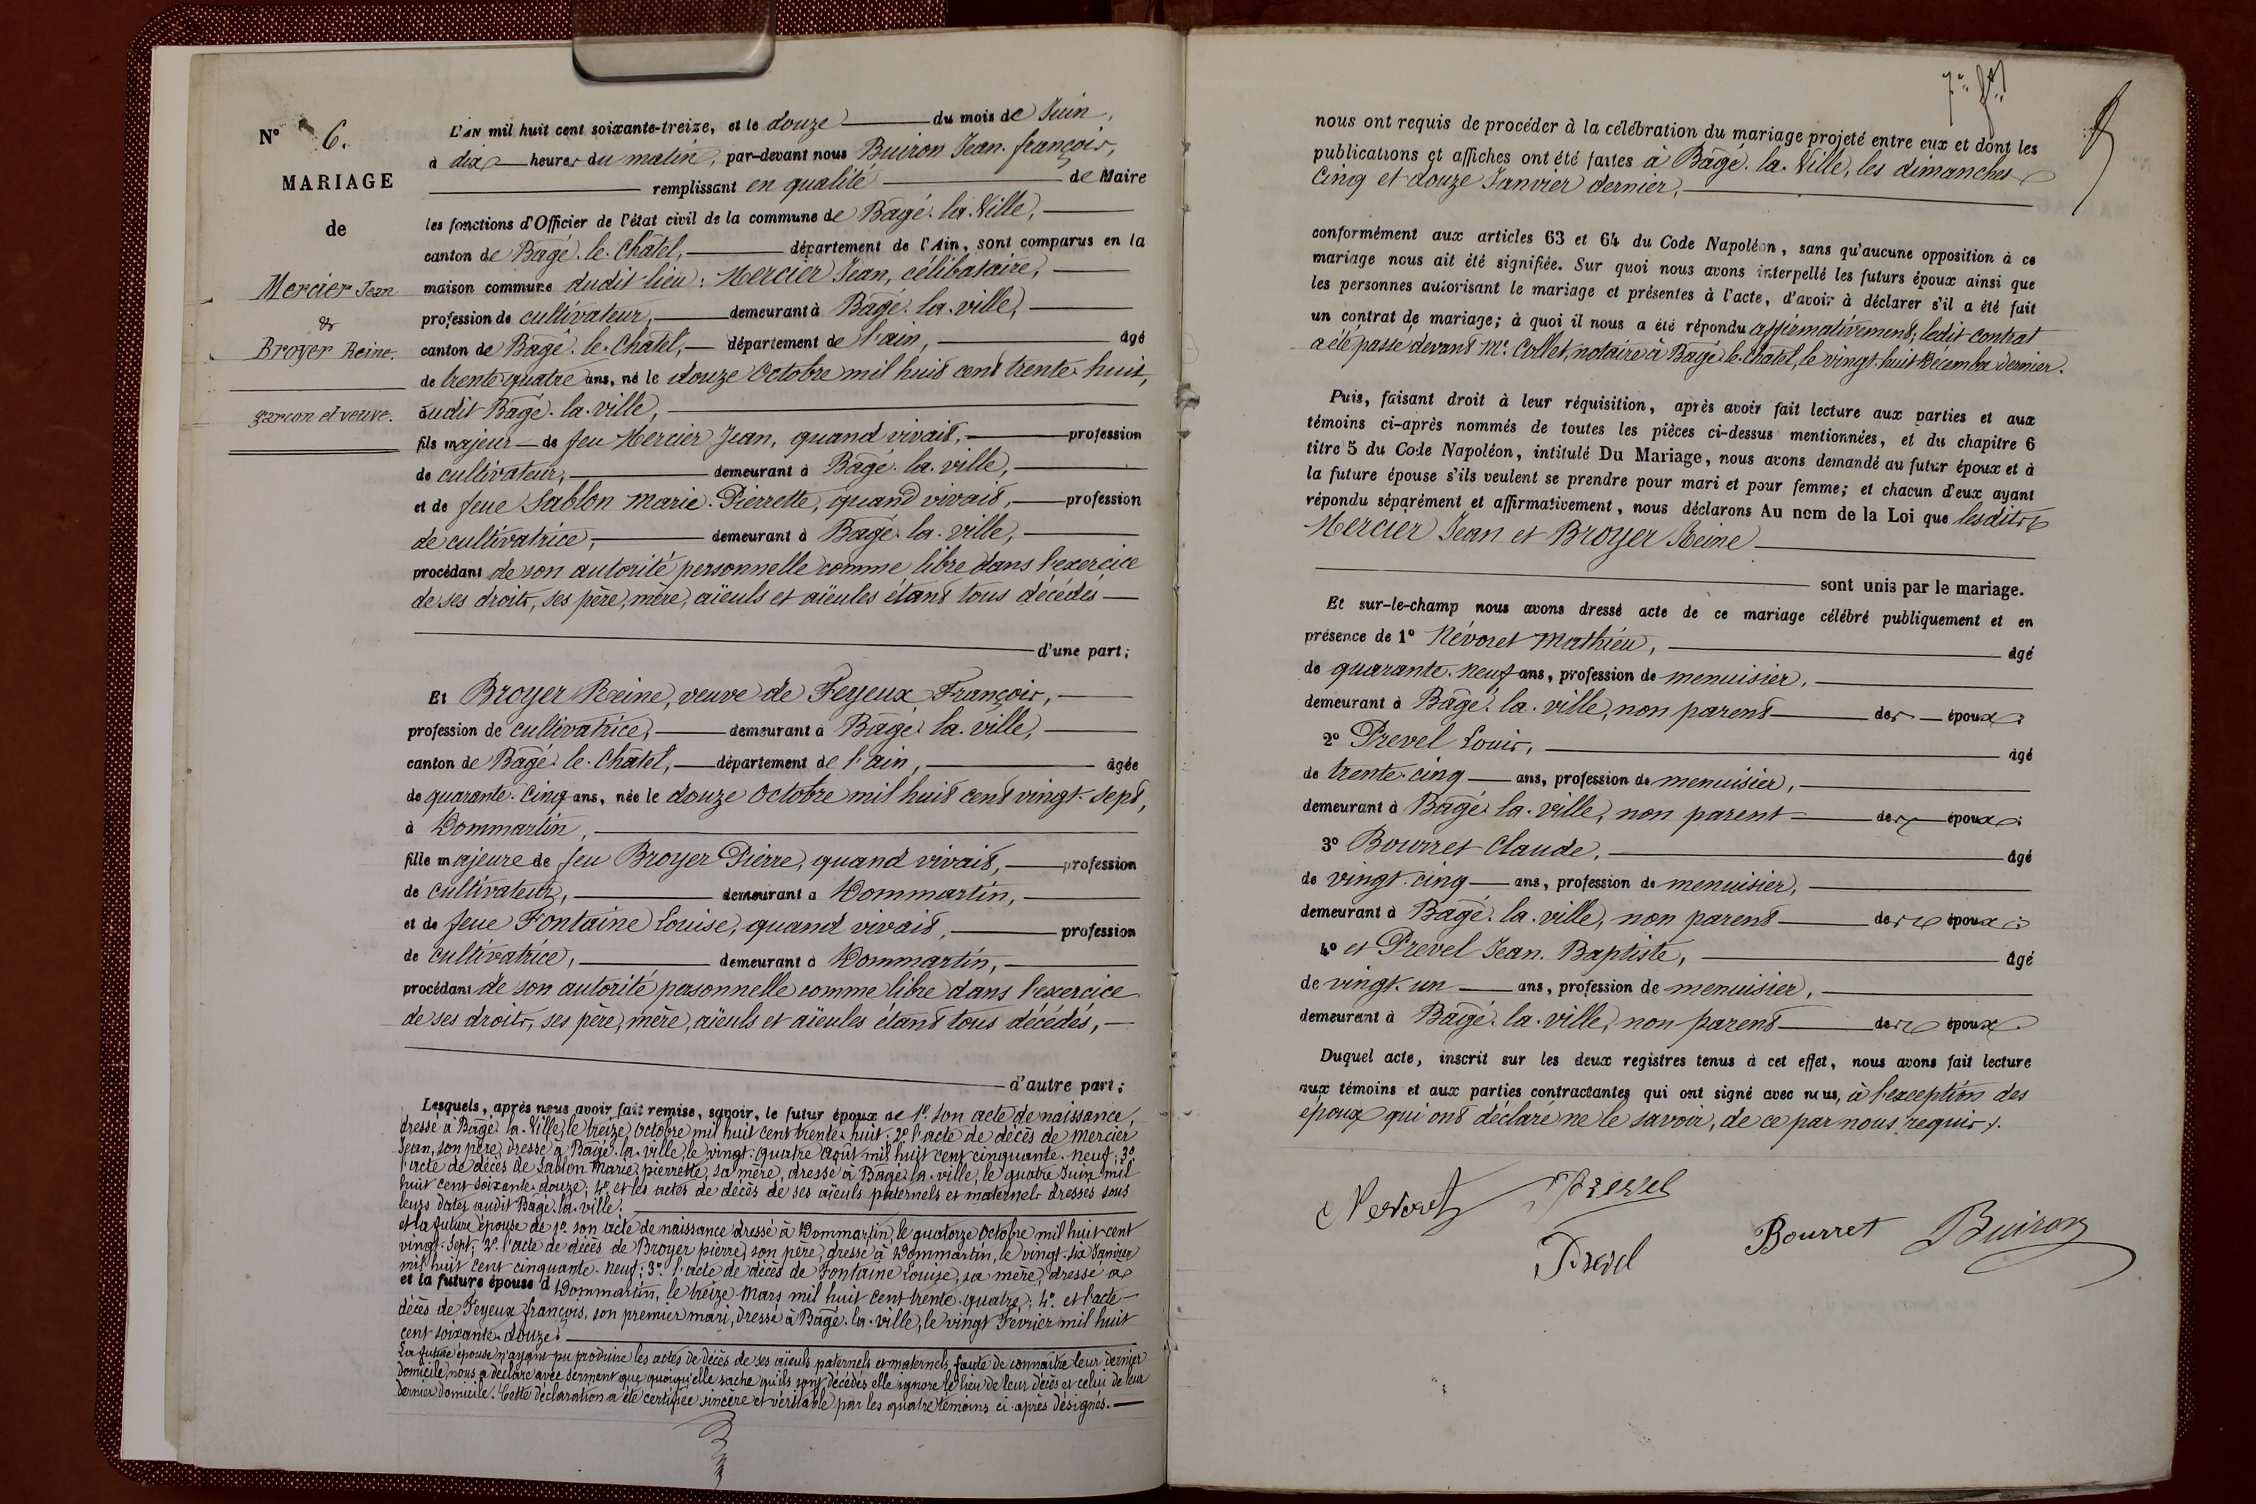 N° 6.
MARIAGE
de
Mercier Jean
&
Broyer Reine.
garçon et veuve.
L'AN mil huit cent soixante-treize, et le douze du mois de Juin,
à dix heures du matin, par-devant nous Buiron Jean-françois,
remplissant en qualité de Maire
les fonctions d'Officier de l'état civil de la commune de Bâgé-la-Ville,
canton de Bâgé-le-Châtel, département de l'Ain, sont comparus en la
maison commune dudit lieu: Mercier Jean, célibataire,
profession de cultivateur, demeurant à Bâgé-la-ville,
canton de Bâgé-le-Châtel, département de l'ain, âgé
de trente-quatre ans, né le douze Octobre mil huit cent trente-huit,
audit Bâgé-la-ville,
fils majeur de feu Mercier Jean, quand vivait, profession
de cultivateur, demeurant à Bâgé-la-ville,
et de feue Sablon Marie-Pierrette, quand vivait, profession
de cultivatrice, demeurant à Bâgé-la-ville,
procédant de son autorité personnelle comme libre dans l'exercice
de ses droits, ses père, mère, aïeuls et aïeules étant tous décédés
d'une part;
Et Broyer Reine, veuve de Feyeux François,
profession de cultivatrice, demeurant à Bâgé-la-ville,
canton de Bâgé-le-Châtel, département de l'ain, âgée
de quarante-cinq ans, née le douze Octobre mil huit cent vingt-sept,
à Dommartin,
fille majeure de feu Broyer Pierre, quand vivait, profession
de cultivateur, demeurant à Dommartin,
et de feue Fontaine Louise, quand vivait, profession
de cultivatrice, demeurant à Dommartin,
procédant de son autorité personnelle comme libre dans l'exercice
de ses droits, ses père, mère, aïeuls et aïeules étant tous décédés,
d'autre part;
Lesquels, après nous avoir fait remise, savoir, le futur époux de 1° son acte de naissance,
dressé à Bâgé-la-Ville, le treize Octobre mil huit cent trente-huit; 2° l'acte de décès de Mercier
Jean, son père, dressé à Bâgé-la-ville, le vingt-quatre août mil huit cent cinquante-neuf; 3°
l'acte de décès de Sablon Marie-pierrette, sa mère, dressé à Bâgé-la-ville, le quatre Juin mil
huit cent soixante-douze; 4° et les actes de décès de ses aïeuls paternels et maternels dressés sous
leurs dates audit Bâgé-la-ville.
et la future épouse de 1° son acte de naissance dressé à Dommartin, le quatorze Octobre mil huit cent
vingt-sept; 2° l'acte de décès de Broyer pierre, son père, dressé à Dommartin, le vingt-six Janvier
mil huit cent cinquante-neuf; 3° l'acte de décès de Fontaine Louise, sa mère, dressé à
et la future épouse d Dommartin, le treize Mars mil huit cent trente-quatre; 4° et l'acte
décès de Feyeux françois, son premier mari, dressé à Bâgé-la-ville, le vingt Février mil huit
cent soixante-douze.
La future épouse n'ayant pu produire les actes de décès de ses aïeuls paternels et maternels, faute de connaître leur dernier
domicile, nous a déclaré avec serment que, quoiqu'elle sache qu'ils sont décédés elle ignore le lieu de leur décès et celui de leur
dernier domicile. Cette déclaration a été certifiée sincère et véritable par les quatre témoins ci-après désignés.
nous ont requis de procéder à la célébration du mariage projeté entre eux et dont les
publications et affiches ont été faites à Bâgé-la-Ville, les dimanches
cinq et douze Janvier dernier,
conformément aux articles 63 et 64 du Code Napoléon, sans qu'aucune opposition à ce
mariage nous ait été signifiée. Sur quoi nous avons interpellé les futurs époux ainsi que
les personnes autorisant le mariage et présentes à l'acte, d'avoir à déclarer s'il a été fait
un contrat de mariage; à quoi il nous a été répondu affirmativement; ledit contrat
a été passé devant Me Collet, notaire à Bâgé-le-Châtel, le vingt-huit Décembre dernier.
Puis, faisant droit à leur réquisition, après avoir fait lecture aux parties et aux
témoins ci-après nommés de toutes les pièces ci-dessus mentionnées, et du chapitre 6
titre 5 du Code Napoléon, intitulé Du Mariage, nous avons demandé au futur époux et à
la future épouse s'ils veulent se prendre pour mari et pour femme; et chacun d'eux ayant
répondu séparément et affirmativement, nous déclarons Au nom de la Loi que lesdits
Mercier Jean et Broyer Reine
sont unis par le mariage.
Et sur-le-champ nous avons dressé acte de ce mariage célébré publiquement et en
présence de 1° Névoret Mathieu, âgé
de quarante-neuf ans, profession de menuisier,
demeurant à Bâgé-la-ville, non parent des époux
2° Prevel Louis, âgé
de trente-cinq ans, profession de menuisier,
demeurant à Bâgé-la-ville, non parent des époux
3° Bourret Claude, âgé
de vingt-cinq ans, profession de menuisier,
demeurant à Bâgé-la-ville, non parent des époux
4° et Prevel Jean-Baptiste, âgé
de vingt-un ans, profession de menuisier,
demeurant à Bâgé-la-ville, non parent des époux
Duquel acte, inscrit sur les deux registres tenus à cet effet, nous avons fait lecture
aux témoins et aux parties contractantes qui ont signé avec nous, à l'exception des
époux qui ont déclaré ne le savoir, de ce par nous requis.
Nevoret Prevel
Bourret Buiron
Prevel